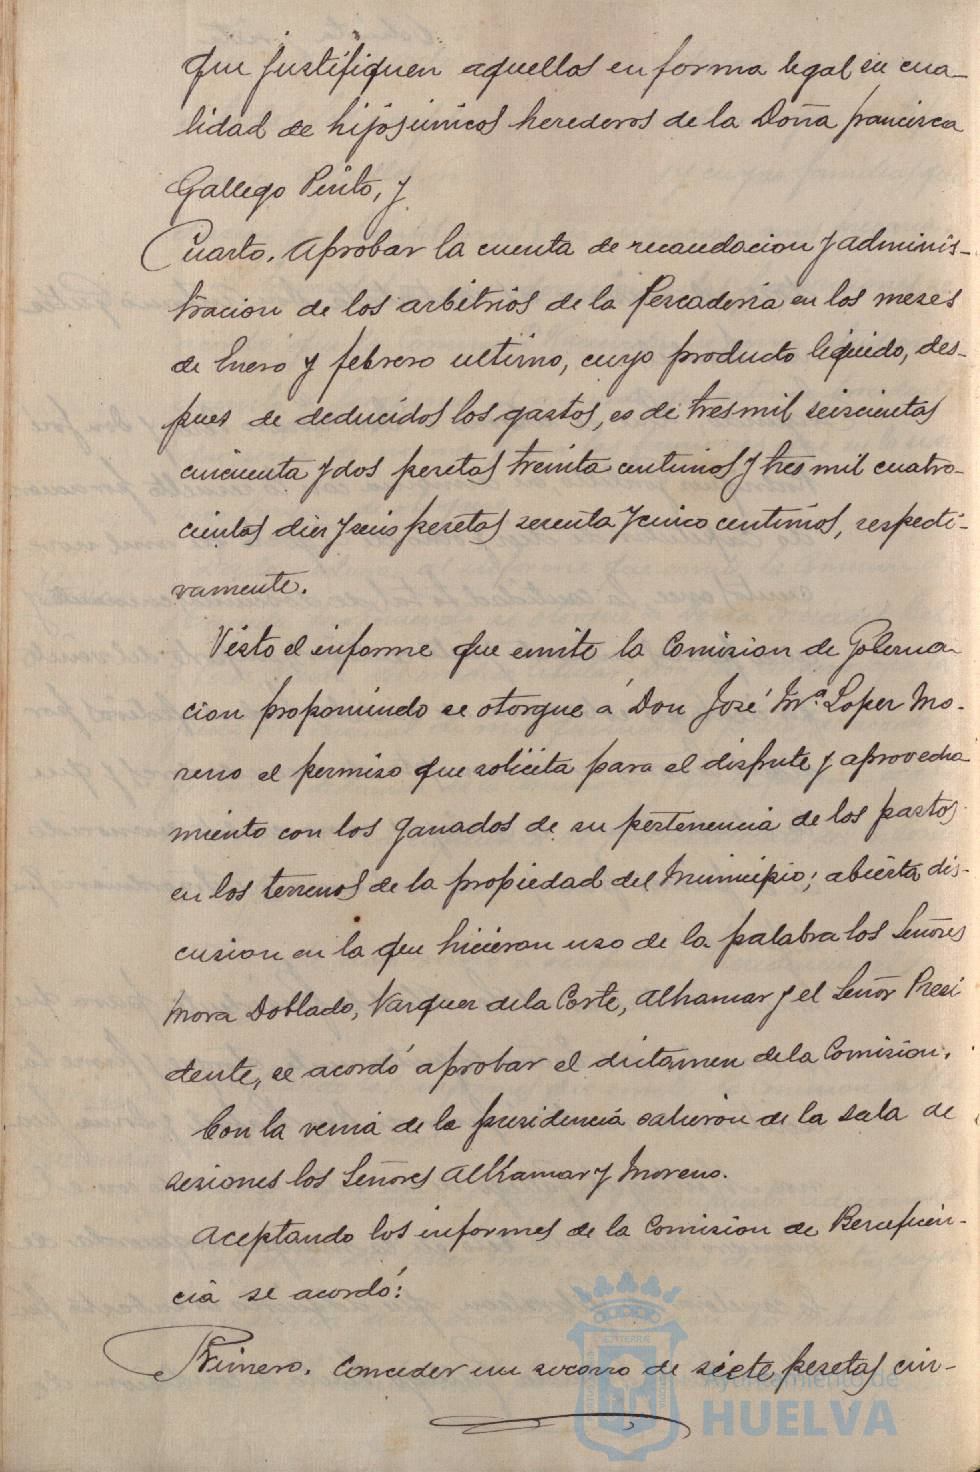 que justifiquen aquellos en forma legal su cua-
lidad de hijos únicos herederos de la Doña francisca
Gallego Pinto, y
Cuarto. Aprobar la cuenta de recaudacion y adminis-
tracion de los arbitrios de la Pescaderia en los meses
de Enero y febrero ultimo, cuyo producto liquido, des-
pues de deducidos los gastos, es de tres mil seiscientas
cincuenta y dos pesetas treinta centimos y tres mil cuatro-
cientas diez y seis pesetas setenta y cinco centimos, respecti-
vamente.
Visto el informe que emite la Comision de Goberna-
cion proponiendo se otorgue á Don José Mª Lopez Mo-
reno el permiso que solicita para el disfrute y aprovecha
miento con los ganados de su pertenencia de los pastos
en los terrenos de la propiedad del Municipio; abierta dis-
cusion en la que hicieron uso de la palabra los Señores
Mora Doblado, Vazquez de la Corte, Alhamar y el Señor Presi
dente, se acordó aprobar el dictamen de la Comision.
Con la venia de la presidencia salieron de la sala de
sesiones los Señores Alhamar y Moreno.
Aceptando los informes de la Comision de Beneficen-
cia se acordó:
Primero. Conceder un socorro de siete pesetas cin-
Ayuntamiento de
HUELVA